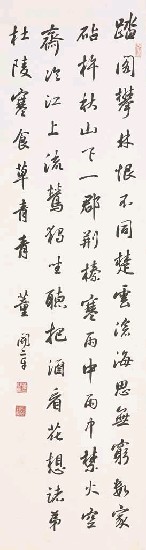 踏閣攀林恨不同楚雲滄海思無窮數家
砧杵秋山下一郡荆榛寒雨中雨中禁火空
齋冷江上流鶯獨坐聽把酒看花想諸弟
杜陵寒食草青青 董開章